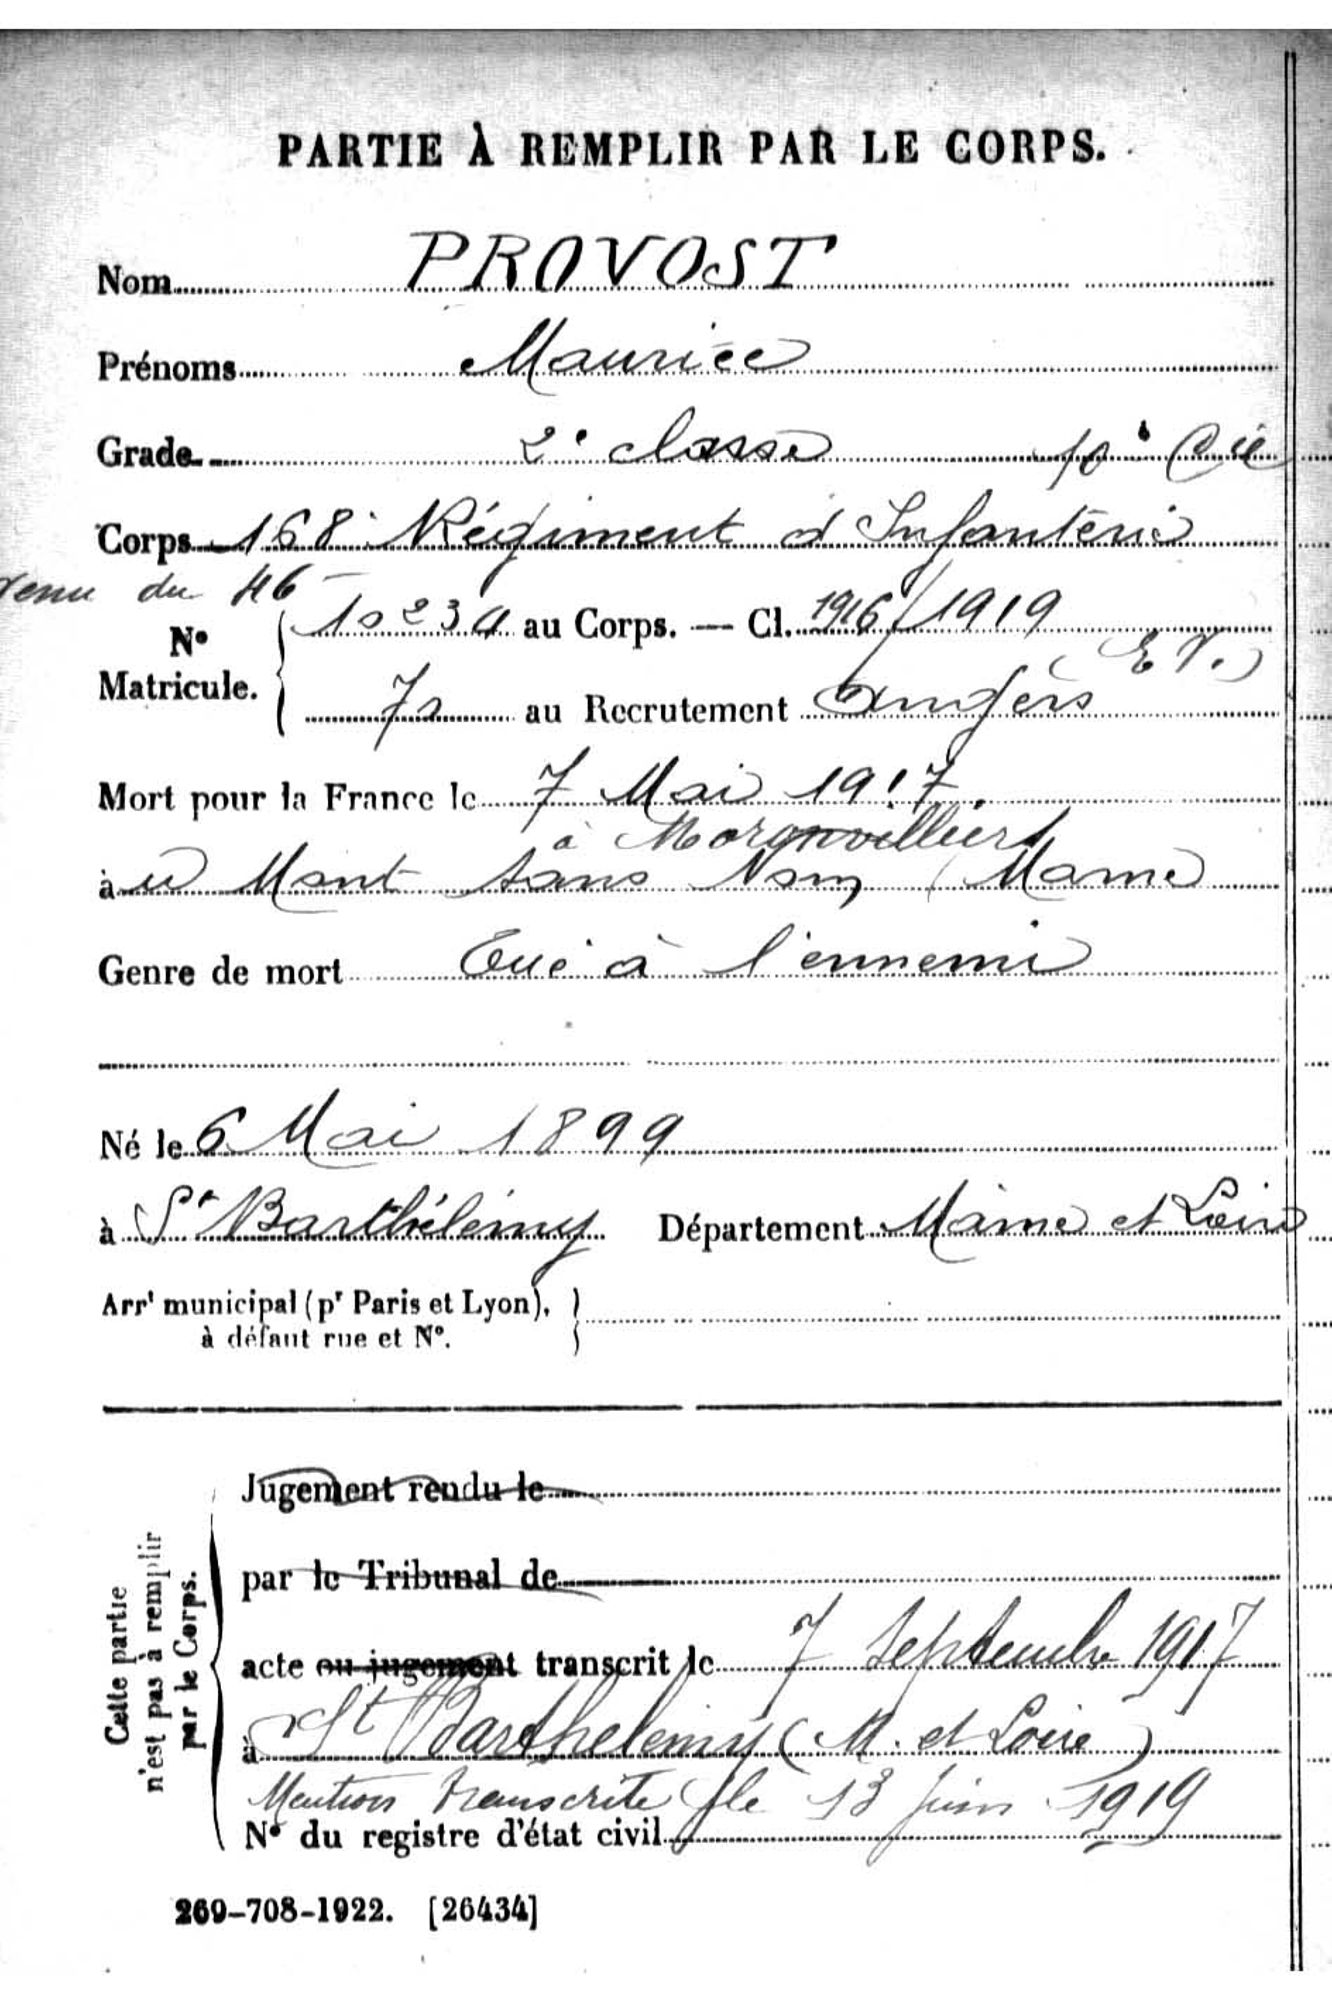 PARTIE À REMPLIR PAR LE CORPS.
Nom PROVOST
Prénoms Maurice
Grade 2e classe 10e Cie
Corps 168e Régiment d'Infanterie
venu du 46
N° Matricule. 10234 au Corps. — Cl. 1916/1919
(E V.)
au Recrutement Angers
Mort pour la France le 7 Mai 1917.
à Moronvilliers
au Mont sans Nom (Marne
Genre de mort Tué à l'ennemi
Né le 6 Mai 1899
à St Barthélémy Département Maine et Loire
Arrt municipal (pr Paris et Lyon), à défaut rue et N°.
Cette partie n'est pas à remplir par le Corps.
Jugement rendu le
par le Tribunal de
acte ou jugement transcrit le 7 Septembre 1917
à St Barthelemy (M. et Loire)
Mention transcrite le 13 juin 1919
N° du registre d'état civil
269-708-1922. [26434]